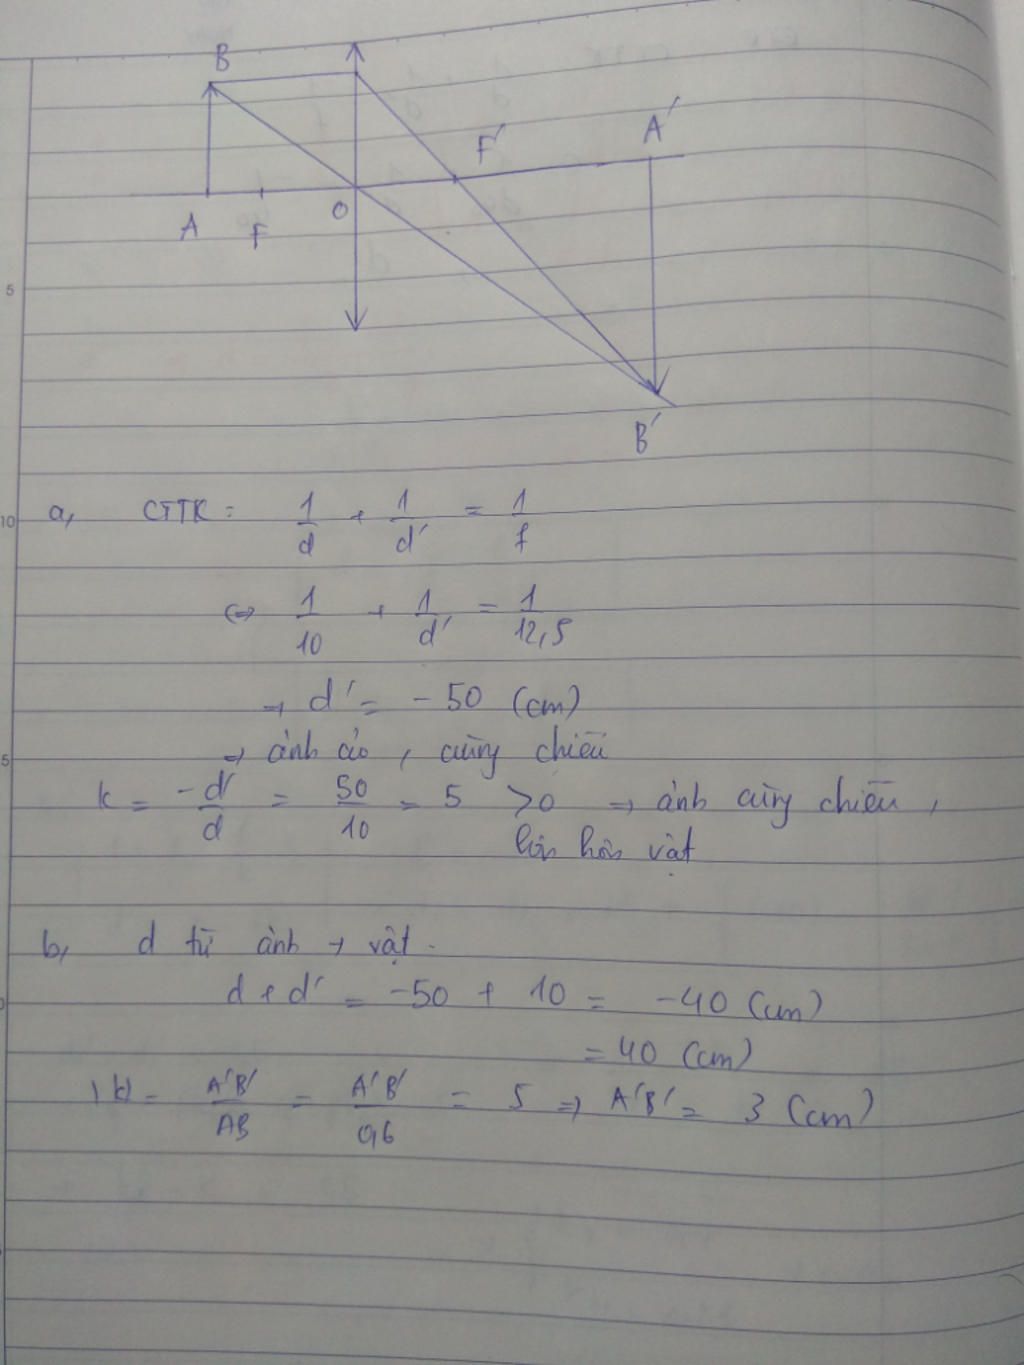 B
F' A'
A F O
5
B'
10
a, CTTK: 1/d + 1/d' = 1/f
<=> 1/10 + 1/d' = 1/12,5
→ d' = -50 (cm)
5
→ ảnh ảo, cùng chiều
k = -d'/d = 50/10 = 5 >0 → ảnh cùng chiều,
lớn hơn vật
b, d từ ảnh → vật.
d + d' = -50 + 10 = -40 (cm)
= 40 (cm)
|k| = A'B'/AB = A'B'/0,6 = 5 => A'B' = 3 (cm)